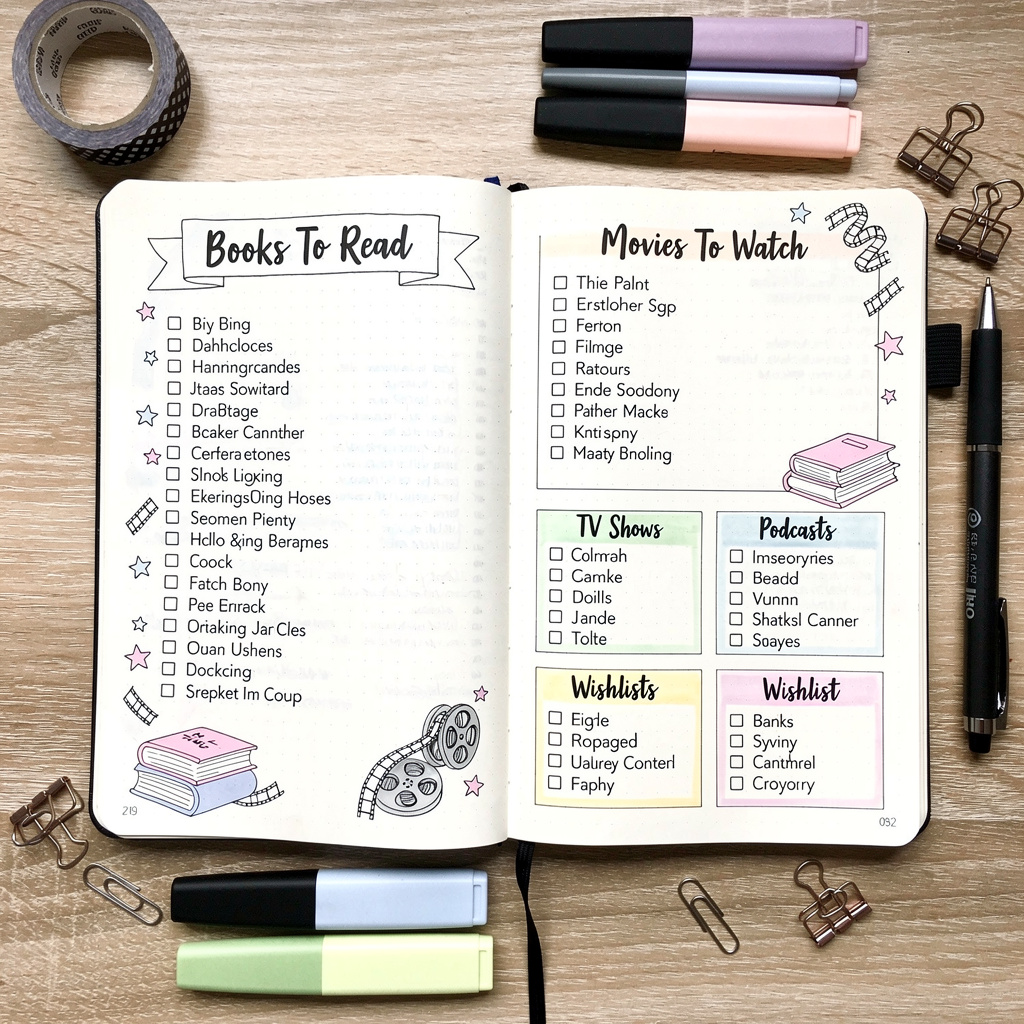 Books To Read
Biy Bing
Dahhcloces
Hanringrcandes
Jtaas Sowitard
DraBtage
Bcaker Cannther
Cerferaetones
Slnok Ligxing
EkeringsOing Hoses
Seomen Pienty
Hcllo &ing Berapmes
Coock
Fatch Bony
Pee Enrack
Oriaking Jar Cles
Ouan Ushens
Dockcing
Srepket Im Coup
219
Movies To Watch
Thie Palnt
Erstloher Sgp
Ferton
Filmge
Ratours
Ende Soddony
Pather Macke
Kntispny
Maaty Bnoling
TV Shows
Colmrah
Camke
Doills
Jande
Tolte
Podcasts
Imseoryries
Beadd
Vunnn
Shatksl Canner
Soayes
Wishlists
Eigle
Ropaged
Ualurey Conterl
Faphy
Wishlist
Banks
Syviny
Cantmrel
Croyorry
032